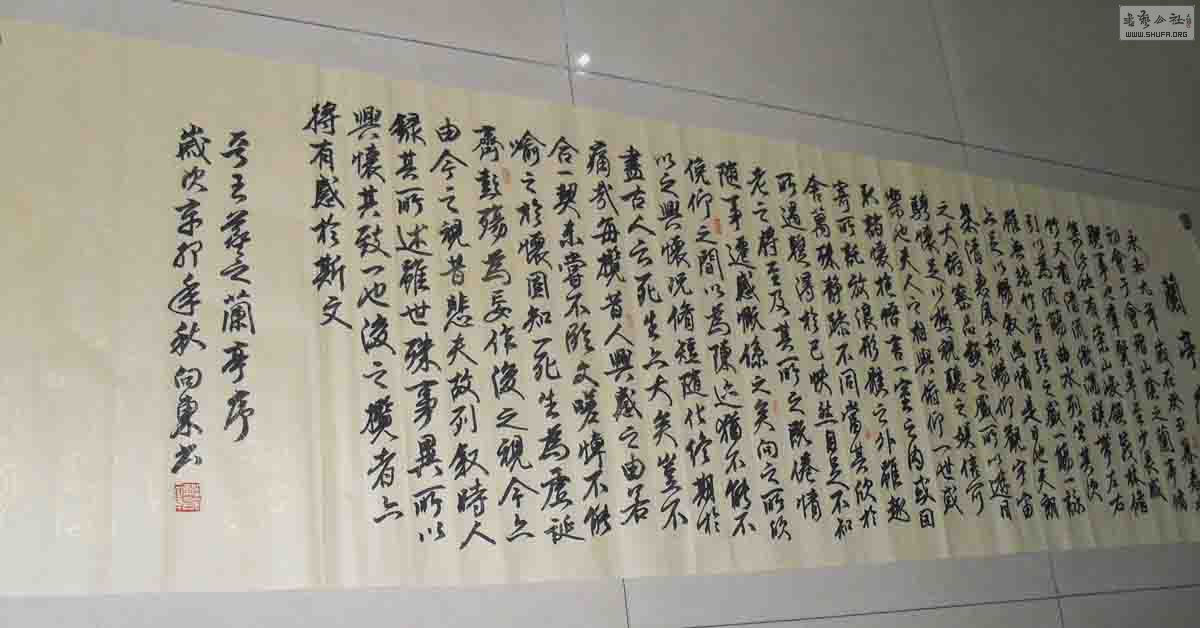 蘭亭
永和九年歲在癸丑暮春
初會于會稽山陰之蘭亭脩
禊事也羣賢畢至少長咸
集此地有崇山峻領茂林脩
竹又有清流激湍暎帶左右
引以為流觴曲水列坐其次
雖無絲竹管弦之盛一觴一詠
亦足以暢叙幽情是日也天朗
氣清惠風和暢仰觀宇宙
之大俯察品類之盛所以遊目
騁懷足以極視聽之娛信可
樂也夫人之相與俯仰一世或
取諸懷抱悟言一室之內或因
寄所託放浪形骸之外雖趣
舍萬殊静躁不同當其欣於
所遇蹔得於己怏然自足不知
老之將至及其所之既倦情
隨事遷感慨係之矣向之所欣
俛仰之間以為陳迹猶不能不
以之興懷況脩短隨化終期於
盡古人云死生亦大矣豈不
痛哉每攬昔人興感之由若
合一契未嘗不臨文嗟悼不能
喻之於懷固知一死生為虛誕
齊彭殤為妄作後之視今亦
由今之視昔悲夫故列叙時人
録其所述雖世殊事異所以
興懷其致一也後之攬者亦
將有感於斯文
王羲之蘭亭序
歲次辛卯年秋向東書
書藝公社
WWW.SHUFA.ORG